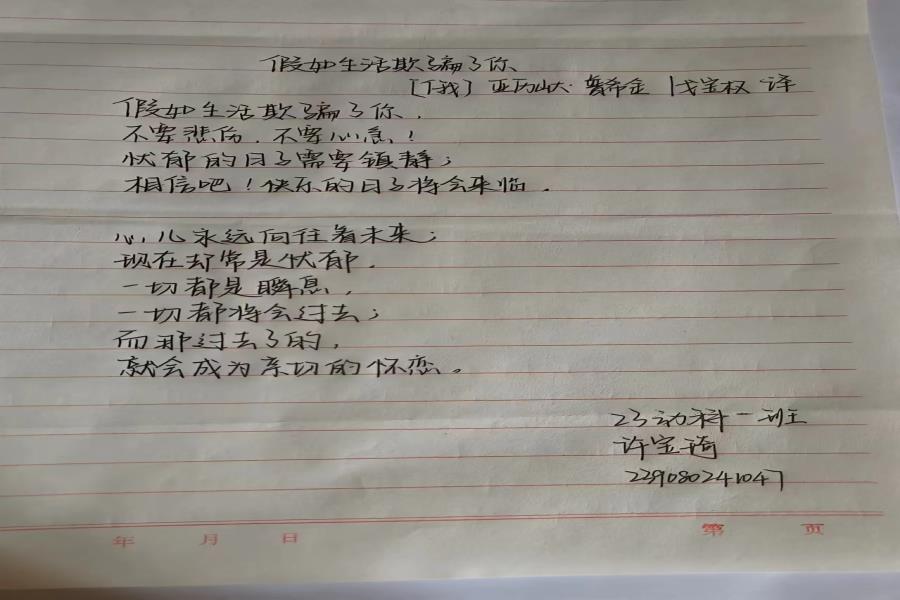 假如生活欺骗了你
[俄] 亚历山大·普希金 戈宝权 译
假如生活欺骗了你,
不要悲伤,不要心急!
忧郁的日子需要镇静;
相信吧!快乐的日子将会来临。
心儿永远向往着未来;
现在却常是忧郁,
一切都是瞬息,
一切都将会过去;
而那过去了的,
就会成为亲切的怀恋。
23动科一班
许宝琦
239080241047
年 月 日 第 页